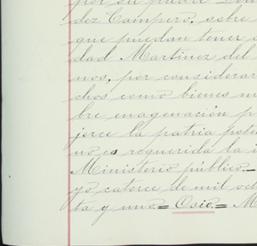 por su padre Don
dez Campero, sobre
que puedan tener a
dad Martinez del
nos, por considerar
chos como bienes m
bre enagenación p
jerce la patria potes
no es requerida la i
Ministerio público.=
yo catorce de mil och
ta y uno= Osio= M